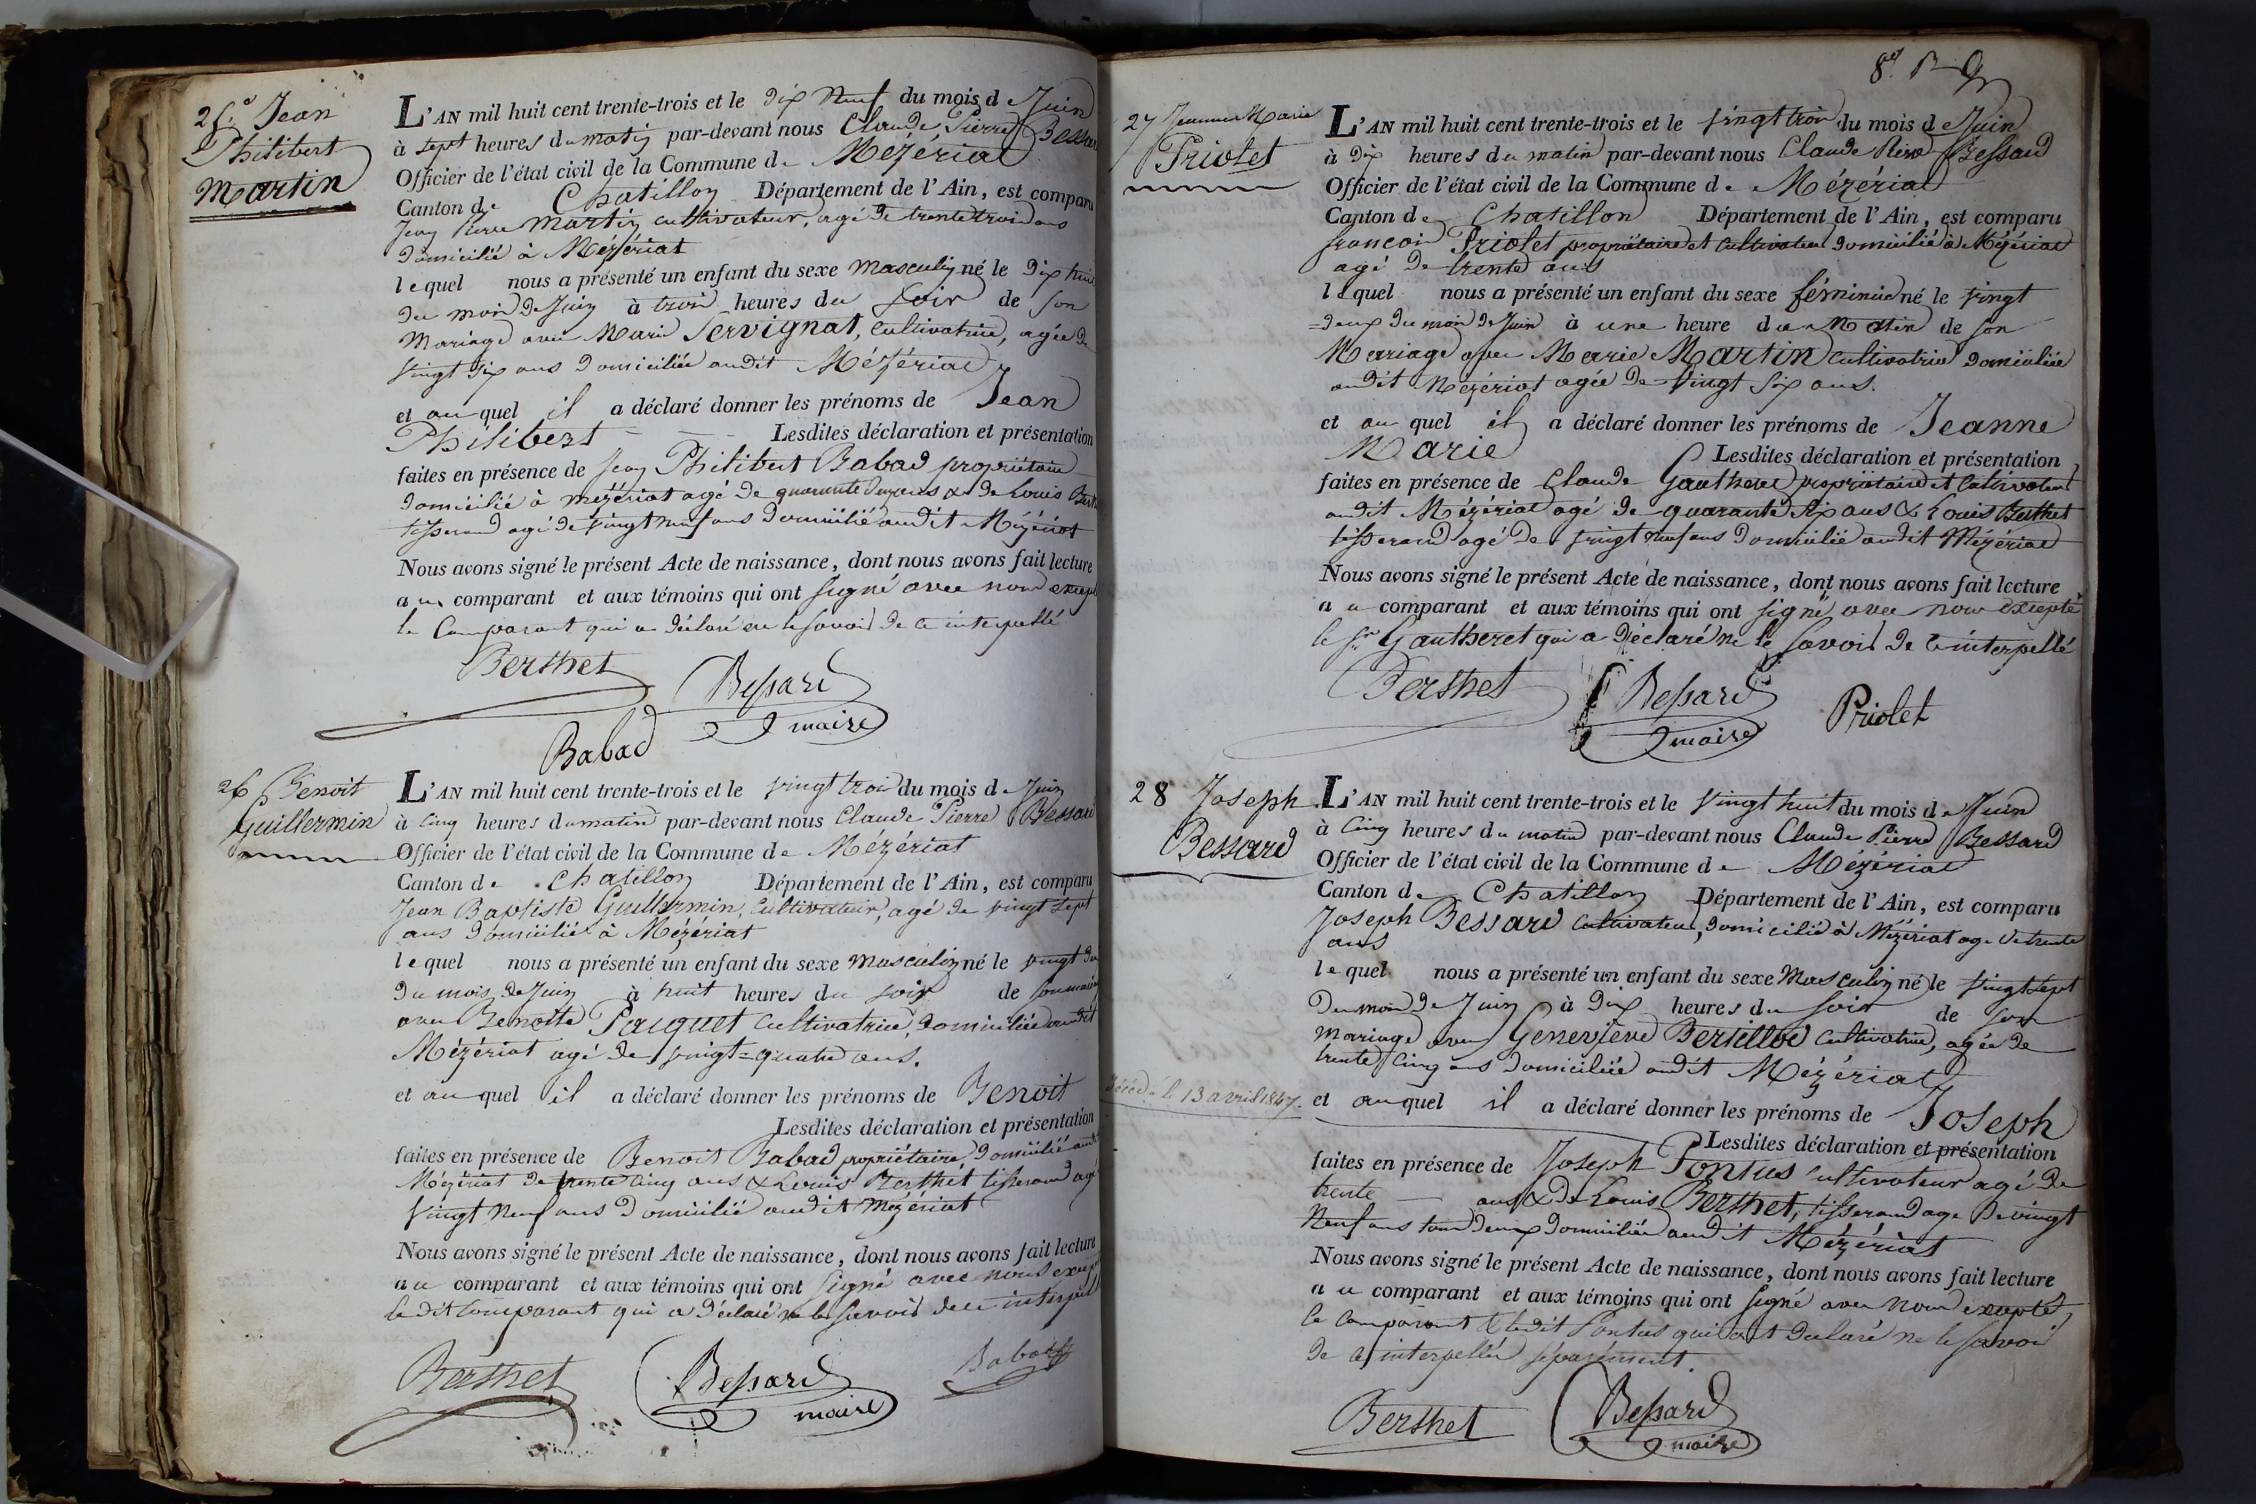 25.e Jean
Philibert
Martin
L'AN mil huit cent trente-trois et le dix Neuf du mois de Juin
à sept heures du matin par-devant nous Claude Pierre Bessard
Officier de l'état civil de la Commune de Mézériat
Canton de Chatillon Département de l'Ain, est comparu
Jean Pierre Martin cultivateur, agé de trente trois ans
domicilié à Mézériat
lequel nous a présenté un enfant du sexe masculin né le dix huit
du mois de Juin à trois heures du soir de son
Mariage avec Marie Servignat, cultivatrice, agée de
vingt six ans domiciliée audit Mézériat
et auquel il a déclaré donner les prénoms de Jean
Philibert Lesdites déclaration et présentation
faites en présence de Jean Philibert Babad propriétaire
domicilié à mézériat agé de quarante deux ans & de Louis Berthet
tisserand agé de vingt neuf ans domicilié audit Mézériat
Nous avons signé le présent Acte de naissance, dont nous avons fait lecture
au comparant et aux témoins qui ont signé avec nous excepté
le Comparant qui a déclaré ne le savoir de ce interpellé
Berthet Bessard
maire
Babad
26 Benoit
Guillermin
L'AN mil huit cent trente-trois et le vingt trois du mois de Juin
à cinq heures du matin par-devant nous Claude Pierre Bessard
Officier de l'état civil de la Commune de Mézériat
Canton de Chatillon Département de l'Ain, est comparu
Jean Baptiste Guillermin, cultivateur, agé de vingt sept
ans domicilié à Mézériat
lequel nous a présenté un enfant du sexe masculin né le vingt deux
du mois de Juin à huit heures du soir de son mariage
avec Benoite Pauquet cultivatrice, domiciliée audit
Mézériat agé de vingt=quatre ans.
et auquel il a déclaré donner les prénoms de Benoit
Lesdites déclaration et présentation
faites en présence de Benoit Babad propriétaire domicilié audit
Mézériat de trente cinq ans & Louis Berthet tisserand agé
vingt neuf ans domicilié audit Mézériat
Nous avons signé le présent Acte de naissance, dont nous avons fait lecture
au comparant et aux témoins qui ont signé avec nous excepté
le dit comparant qui a déclaré ne le savoir de ce interpellé
Berthet Bessard Babad
maire
27 Jeanne Marie
Priolet
L'AN mil huit cent trente-trois et le vingt trois du mois de Juin
à dix heures du matin par-devant nous Claude Pierre Bessard
Officier de l'état civil de la Commune de Mézériat
Canton de Chatillon Département de l'Ain, est comparu
françois Priolet propriétaire et cultivateur domicilié à Mézériat
agé de trente ans
lequel nous a présenté un enfant du sexe féminin né le vingt
=deux du mois de Juin à une heure du Matin de son
Mariage avec Marie Martin cultivatrice domiciliée
audit Mézériat agée de vingt six ans.
et auquel il a déclaré donner les prénoms de Jeanne
Marie Lesdites déclaration et présentation
faites en présence de Claude Gautheret propriétaire et Cultivateur
audit Mézériat agé de quarante six ans & Louis Berthet
tisserand agé de vingt neuf ans domicilié audit Mézériat
Nous avons signé le présent Acte de naissance, dont nous avons fait lecture
au comparant et aux témoins qui ont signé avec nous excepté
le Sr Gautheret qui a déclaré ne le savoir de ce interpellé
Berthet Bessard Priolet
maire
28 Joseph
Bessard
L'AN mil huit cent trente-trois et le vingt huit du mois de Juin
à cinq heures du matin par-devant nous Claude Pierre Bessard
Officier de l'état civil de la Commune de Mézériat
Canton de Chatillon Département de l'Ain, est comparu
Joseph Bessard cultivateur, domicilié à Mézériat age de trente
ans
lequel nous a présenté un enfant du sexe Masculin né le vingt sept
du mois de Juin à dix heures du soir de son
mariage avec Geneviève Bertillod cultivatrice, agée de
trente cinq ans domiciliée audit Mézériat
décédé le 13 avril 1847.
et auquel il a déclaré donner les prénoms de Joseph
Lesdites déclaration et présentation
faites en présence de Joseph Pontus cultivateur agé de
trente ans & de Louis Berthet, tisserand age de vingt
Neuf ans tous deux domiciliés audit Mézériat
Nous avons signé le présent Acte de naissance, dont nous avons fait lecture
au comparant et aux témoins qui ont signé avec nous excepté
le comparant & ledit Pontus qui ont declaré ne le savoir
de ce interpellés séparément.
Berthet Bessard
maire